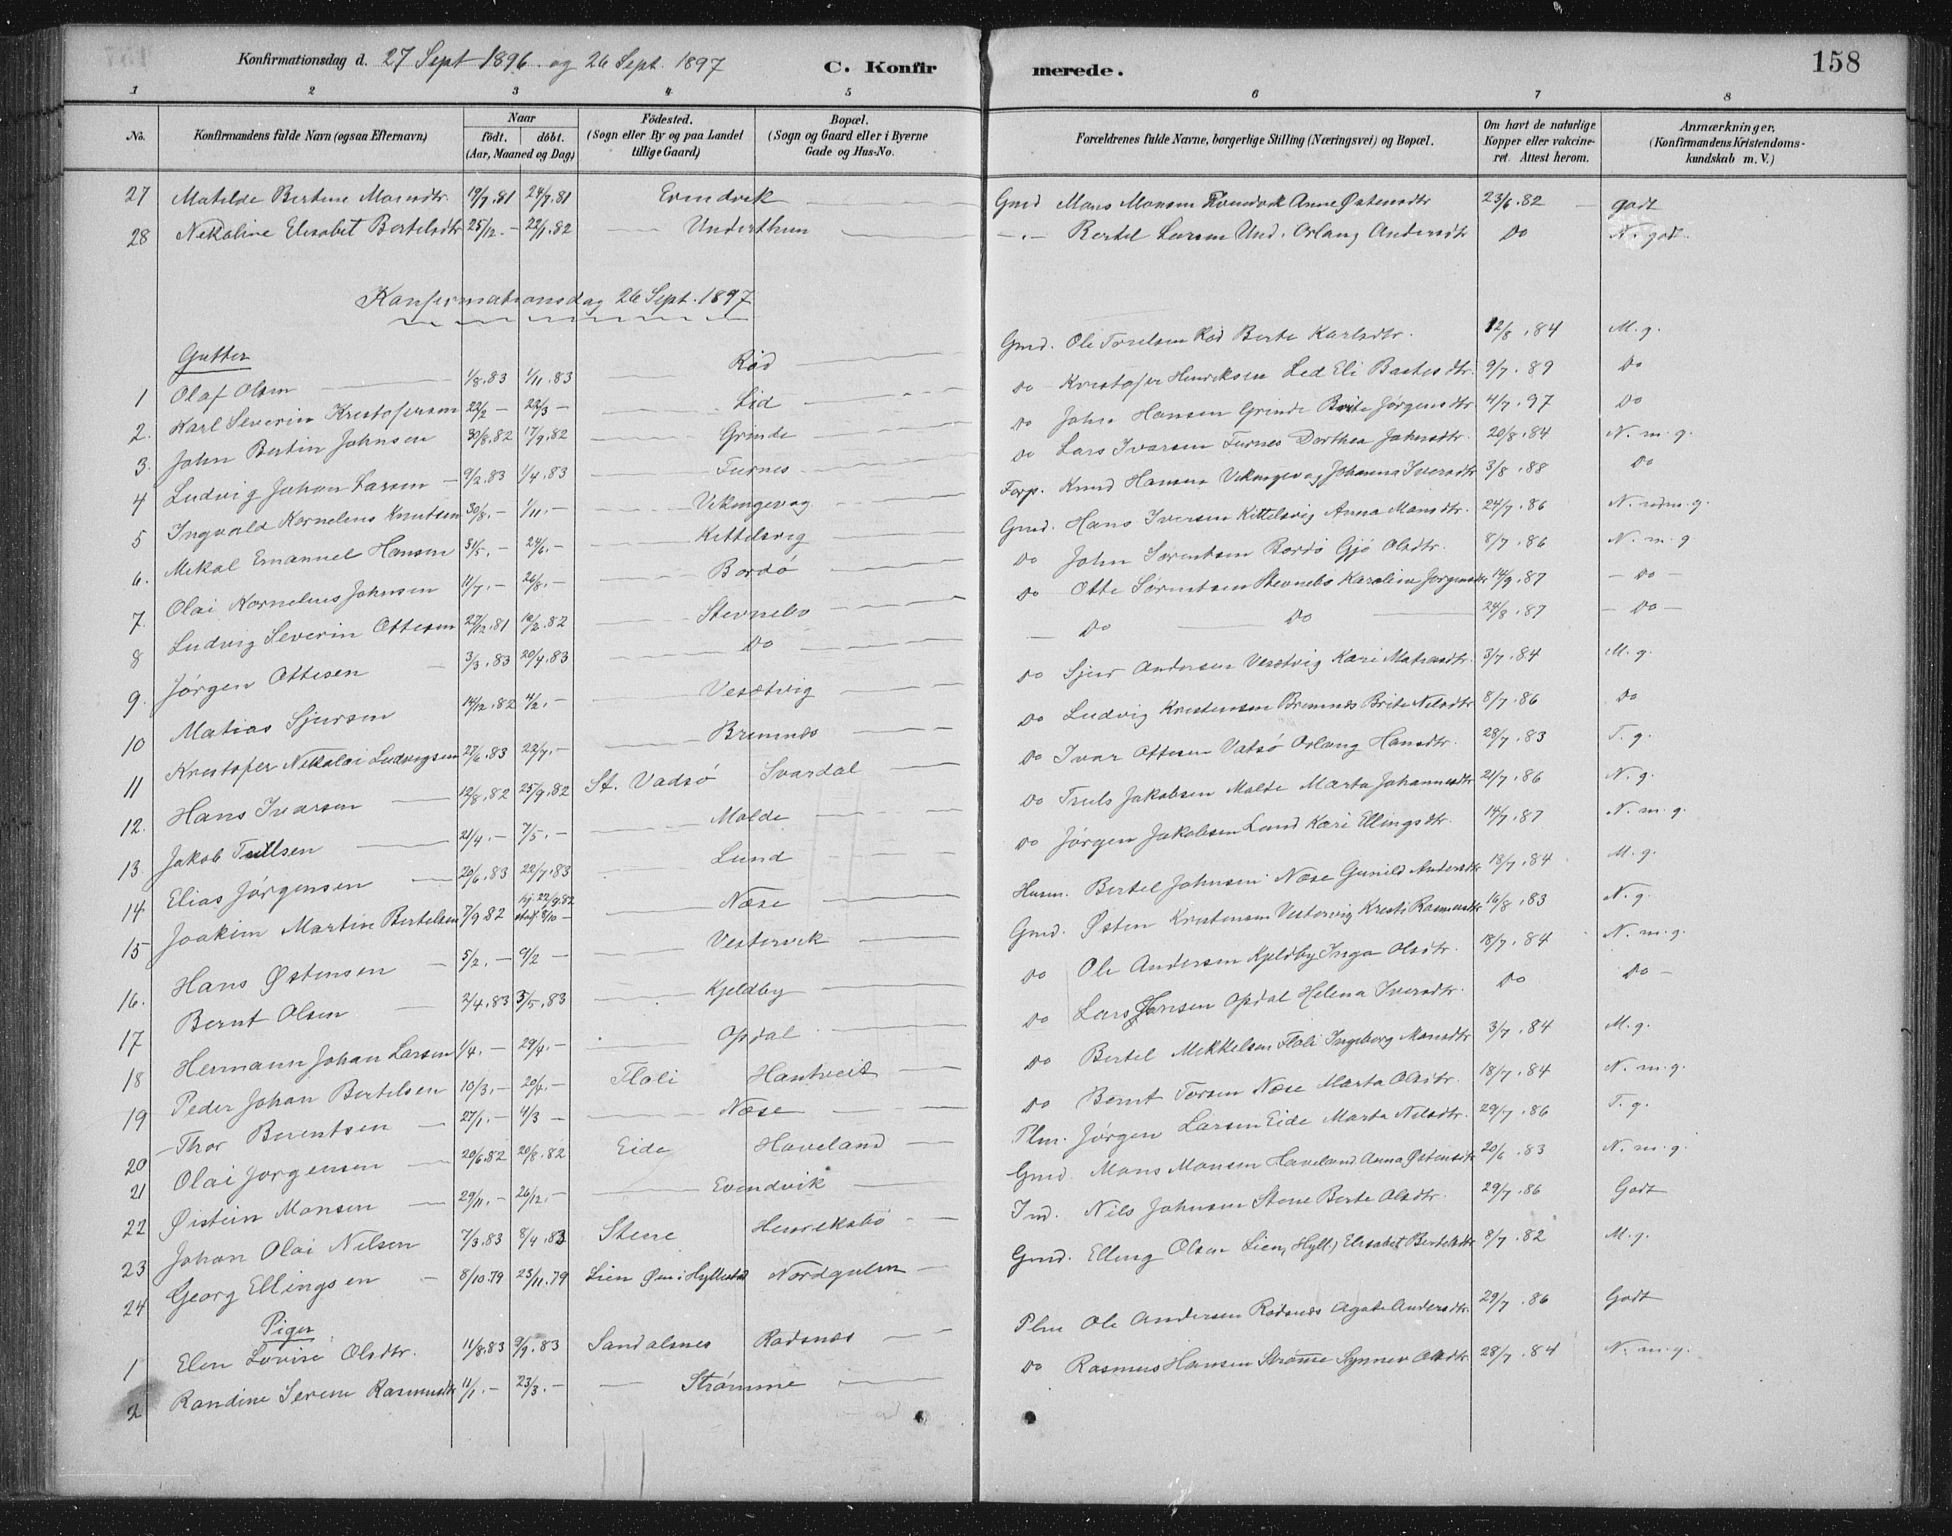 158
Konfirmationsdag d. 27 Sept 1896 og 26 Sept. 1897 C. Konfir merede.
1 2 3 4 5 6 7 8
No. Konfirmandens fulde Navn (ogsaa Efternavn) Naar født. døbt. (Aar, Maaned og Dag) Fødested. (Sogn eller By og paa Landet tillige Gaard) Bopæl. (Sogn og Gaard eller i Byerne Gade og Hus-No. Forældrenes fulde Navne, borgerlige Stilling (Næringsvei) og Bopæl. Om havt de naturlige Kopper eller vakcineret. Attest herom. Anmærkninger, (Konfirmandens Kristendomskundskab m. V.)
27 Matilde Bertine Monsdtr. 19/7.81 24/7.81 Evindvik Gmd Mons Monsen Evindvik Anne Østensdtr 23/6.82 godt
28 Nikoline Elisabet Bertelsdtr 25/12.- 22/1.82 Underthun -.- Bertel Larsen Und. Orlaug Andersdtr Do N. godt.
Konfirmationsdag 26 Sept. 1897
Gutter
1 Olaf Olsen 1/8.83 1/11.83 Rød Gmd. Ole Toselsen Rød Berte Karlsdtr. 12/8.84 M.g.
2. Karl Severin Kristofersen 22/2 - 22/3 - Lid Do Kristofer Henriksen Lid Eli Bastesdtr. 9/7.89 Do
3. John Bertin Johnsen 30/8.82 17/9.82 Grinde Do John Hansen Grinde Brite Jørgensdtr 4/7.97 Do
4 Ludvig Johan Larsen 9/2.83 1/4.83 Furnes Do Lars Ivarsen Furnes Dorthea Johnsdtr. 20/8.84 N.m.g.
5 Ingvald Kornelius Knutsen 30/8.- 1/11.- Vikingevaag Forp. Knud Hansen Vikingevaag Johanna Iversdtr 3/8.88 Do
6. Mikal Emanuel Hansen 31/5.- 24/6.- Kittelsvig Gmd. Hans Iversen Kittelsvig Anna Monsdtr. 24/7.86 N. m.g.
7. Olai Kornelius Johnsen 11/7.- 26/8.- Bordø Do John Sørentsen Bordø Gjø Olsdtr. 8/7.86 N.m.g
8 Ludvig Severin Ottesen 27/12.81 12/2.82 Stevnebø Do Otte Sørentsen Stevnebø Karoline Jørgensdtr 14/9.87 - Do -
9. Jørgen Ottesen 3/3.83 20/4.83 Do - Do Do 24/8.87 - Do -
10 Matias Sjursen 14/12.82 4/2.- Vesetvig Do Sjur Andersen Vesetvig Kari Matsdtr. 3/7.84 M.g.
11 Kristofer Nikolai Ludvigsen 27/6.83 22/7.- Bremnes Do Ludvig Kristensen Bremnes Brite Nilsdtr 8/7.86 Do
12. Hans Ivarsen 12/8.82 25/9.82 St. Vadsø Svardal Do Ivar Ottesen Vatsø Orlaug Hansdtr. 28/7.83 T.g.
13. Jakob Trulsen 21/4.- 7/5.- Molde Do Truls Jakobsen Molde Marta Johannesdtr 21/7.86 N.g.
14 Elias Jørgensen 20/6.83 22/7.83 Lund Do Jørgen Jakobsen Lund Kari Ellingsdtr. 14/7.87 N.m.g.
15 Joakim Martin Bertelsen 7/9.82 hj. 22/9.82 stadf. 8/10 - Næse Husm. Bertel Johnsen Næse Gunild Andersdtr 18/7.84 M.g.
16. Hans Østensen 5/2.- 9/2 - Vestervik Gmd. Østen Kristensen Vestervig Kristi Rasmusdtr 16/8.83 N.g.
17 Bernt Olsen 2/4.83 3/5.83 Kjeldby Do Ole Andersen Kjeldby Inga Olsdtr. 18/7.84 N.m.g.
18 Hermann Johan Larsen 1/4.- 29/4.- Opdal Do Lars Hansen Opdal Helena Iversdtr. Do Do -
19 Peder Johan Bertelsen 10/3.- 20/4.- Floli Hantveit Do Bertel Mikkelsen Floli Ingeborg Monsdtr 3/7.84 M.g.
20 Thor Berentsen 27/1.- 4/3 - Næse Do Bernt Torsen Næse Marta Olsdtr. 18/7.84 N.m.g.
21 Olai Jørgensen 20/6.82 20/8.82 Eide Haveland Plm. Jørgen Larsen Eide Marta Nilsdtr. 29/7.86 T.g.
22 Øistein Monsen 29/11.- 26/12.- Evindvik Gmd. Mons Monsen Haveland Anna Østensdtr 20/6.83 N.m.g.
23 Johan Olai Nilsen 7/3.83 8/4.83 Stene Henriksbø Ind. Nils Johnsen Stene Berte Olsdtr. 29/7.86 Godt
24 Georg Ellingsen 8/10.79 23/11.79 Lien Øen i Hyllestad Nordgulen Gmd. Elling Olsen Lien, Hyll.) Elisabet Bertelsdtr 8/7.82 M.g.
Piger
1 Elen Lovise Olsdtr. 11/8.83 9/9.83 Sandalsnes Radsnes Plm Ole Andersen Radsnes Agate Andersdtr 29/7.86 Godt
2 Randine Serene Rasmusdtr 11/1.- 23/3.- Strømme Do Rasmus Hansen Strømme Synnev Olsdtr 28/7.84 N.m.g.